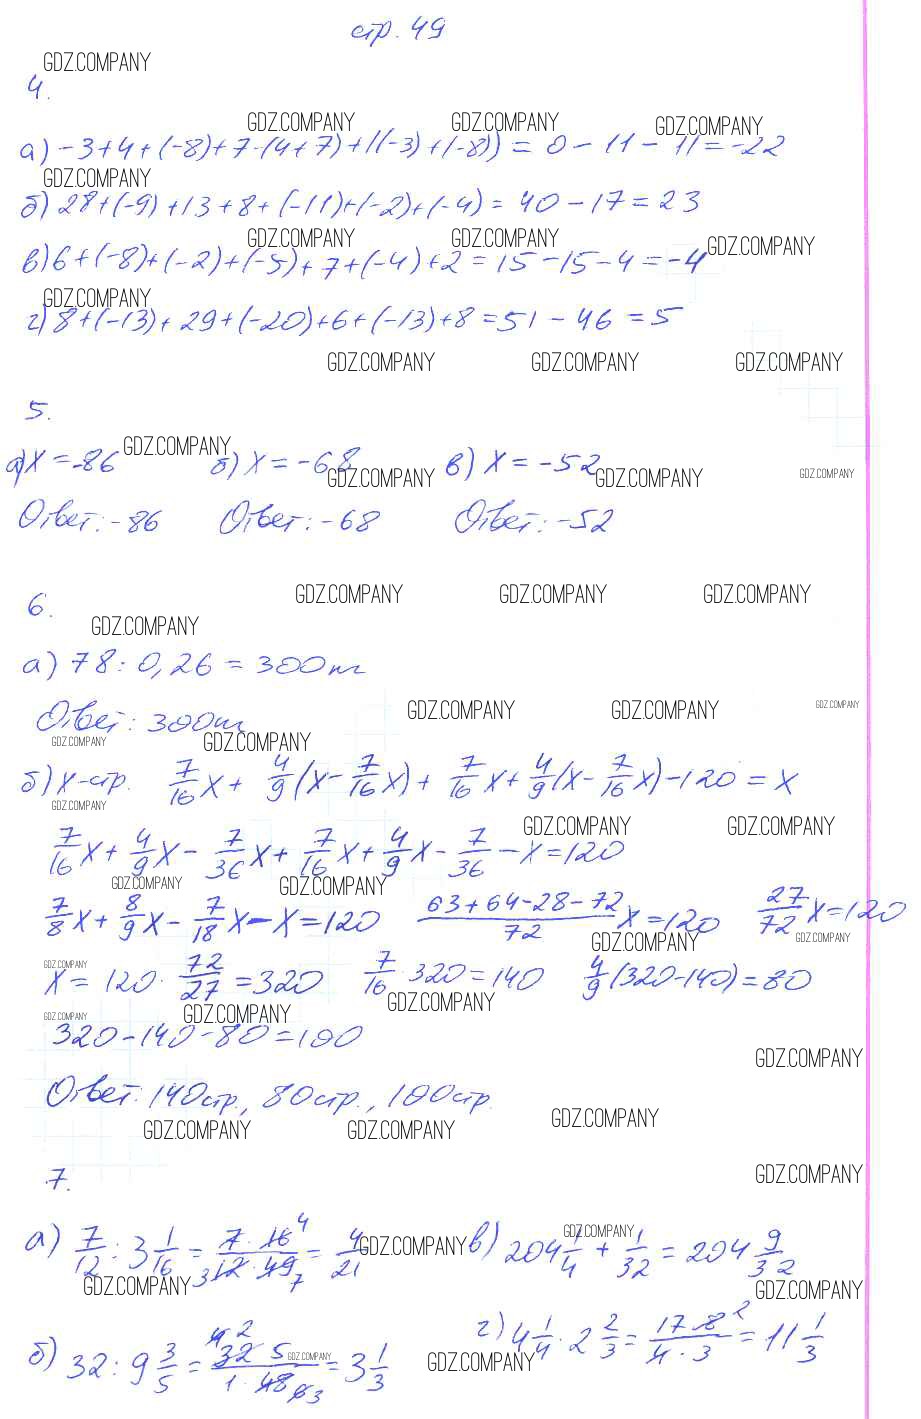 стр. 49
GDZ.COMPANY
4.
GDZ.COMPANY GDZ.COMPANY GDZ.COMPANY
а) -3+4+(-8)+7-(4+7)+((-3)+(-8)) = 0-11-11=-22
GDZ.COMPANY
б) 28+(-9)+13+8+(-11)+(-2)+(-4)=40-17=23
GDZ.COMPANY GDZ.COMPANY GDZ.COMPANY
в) 6+(-8)+(-2)+(-5)+7+(-4)+2=15-15-4=-4
GDZ.COMPANY
г) 8+(-13)+29+(-20)+6+(-13)+8=51-46=5
GDZ.COMPANY GDZ.COMPANY GDZ.COMPANY
5.
GDZ.COMPANY
а) x=-86 б) x=-68 в) x=-52
GDZ.COMPANY GDZ.COMPANY GDZ.COMPANY
Ответ: -86 Ответ: -68 Ответ: -52
GDZ.COMPANY GDZ.COMPANY GDZ.COMPANY
6.
GDZ.COMPANY
а) 78:0,26=300т
GDZ.COMPANY GDZ.COMPANY GDZ.COMPANY
Ответ: 300т
GDZ.COMPANY GDZ.COMPANY
б) x-стр. 7/16 x + 4/9 (x - 7/16 x) + 7/16 x + 4/9 (x - 7/16 x) - 120 = x
GDZ.COMPANY
GDZ.COMPANY GDZ.COMPANY
7/16 x + 4/9 x - 7/36 x + 7/16 x + 4/9 x - 7/36 - x = 120
GDZ.COMPANY GDZ.COMPANY
7/8 x + 8/9 x - 7/18 x - x = 120 (63+64-28-72)/72 x = 120 27/72 x = 120
GDZ.COMPANY GDZ.COMPANY
GDZ.COMPANY
x = 120 · 72/27 = 320 7/16 · 320 = 140 4/9 (320-140) = 80
GDZ.COMPANY GDZ.COMPANY GDZ.COMPANY
320-140-80=100
GDZ.COMPANY
Ответ: 140стр., 80стр., 100стр.
GDZ.COMPANY GDZ.COMPANY GDZ.COMPANY
7.
GDZ.COMPANY
а) 7/12 : 3 1/16 = (7·16 4)/(3 12·49 7) = 4/21 GDZ.COMPANY в) 204 1/4 + 1/32 = 204 9/32 GDZ.COMPANY
GDZ.COMPANY GDZ.COMPANY
б) 32 : 9 3/5 = (4 2 32 5)/(1·48 6 3) = 3 1/3 GDZ.COMPANY г) 4 1/4 · 2 2/3 = (17·8 2)/(4·3) = 11 1/3
GDZ.COMPANY